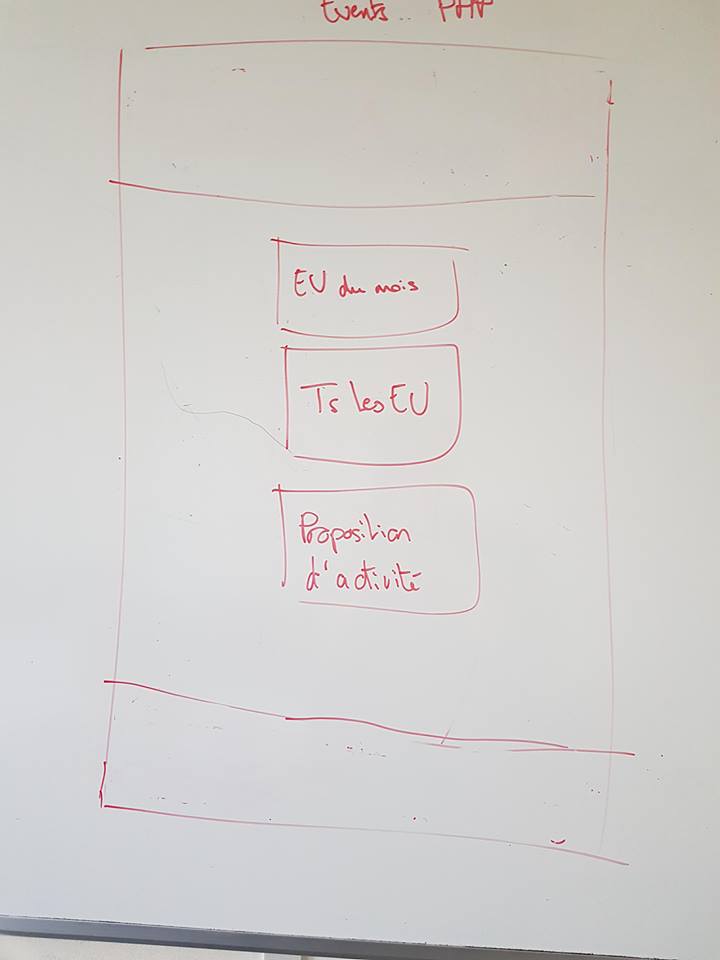 Events PHP
EV du mois
Ts les EV
Proposition
d'activité